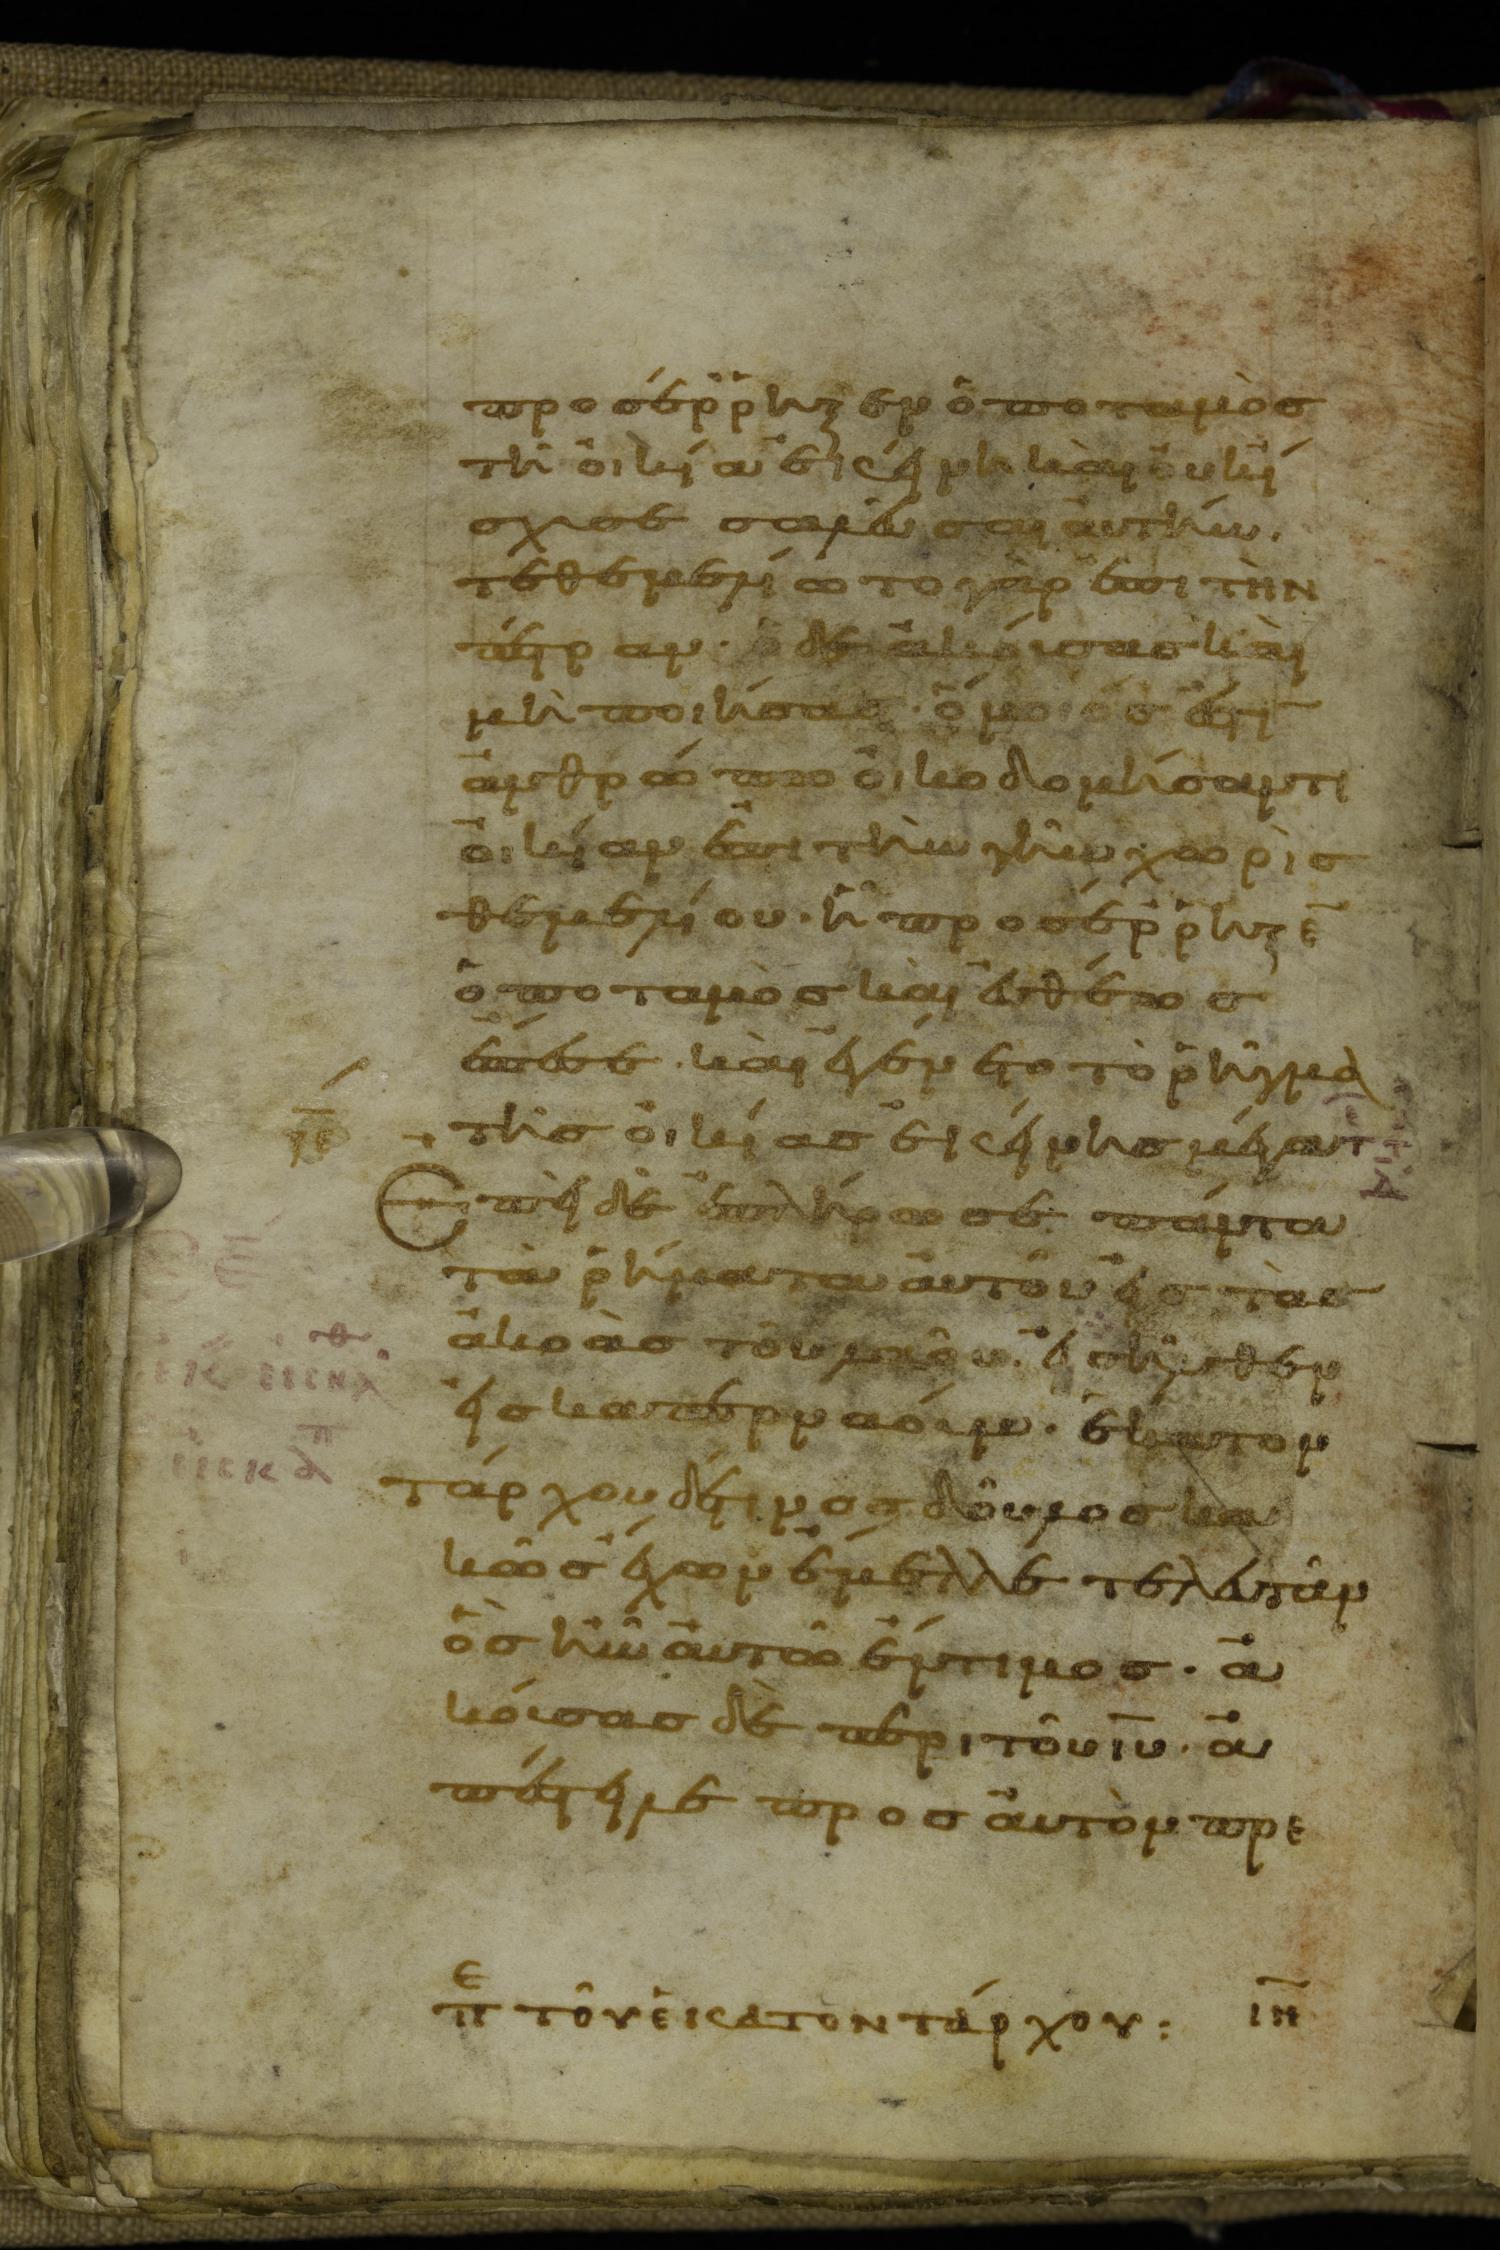 προσέρρηξεν ὁ ποταμὸς
τῆ οἰκία ἐκείνη καὶ οὐκ ί
σχυσε σαλεῦσαι αὐτήν.
τεθεμελίωτο γὰρ ἐπὶ τὴν
πέτραν· ὁ δὲ ἀκούσας καὶ
μὴ ποιήσας· ὅμοιός ἐστὶ
ἀνθρώπω οἰκοδομήσαντι
οἰκίαν ἐπὶ τὴν γῆν χωρὶς
θεμελίου· ἧ προσέρρηξε̄
ὁ ποταμὸς καὶ εὐθέως
ἔπεσε· καὶ ἐγένετο τὸ ῥῆγμα
τῆς οἰκίας ἐκείνης μέγα
Επεὶ δὲ ἐπλήρωσε πάντα
τὰ ῥήματα αὐτοῦ εἰς τὰς
ἀκοὰς τοῦ λαοῦ. εἰσῆλθεν
εἰς καπερναούμ· ἑκατον
τάρχου δέ τινος δοῦλος κα
κῶς ἔχων ἔμελλε τελευτᾶν
ὃς ἦν αὐτῶ ἔντιμος· ἀ
κούσας δὲ περὶ τοῦ ιῡ· ἀ
πέστειλε προς αὐτὸν πρε
ε̄
π τοῦ ἑκατοντάρχου: ιη̄